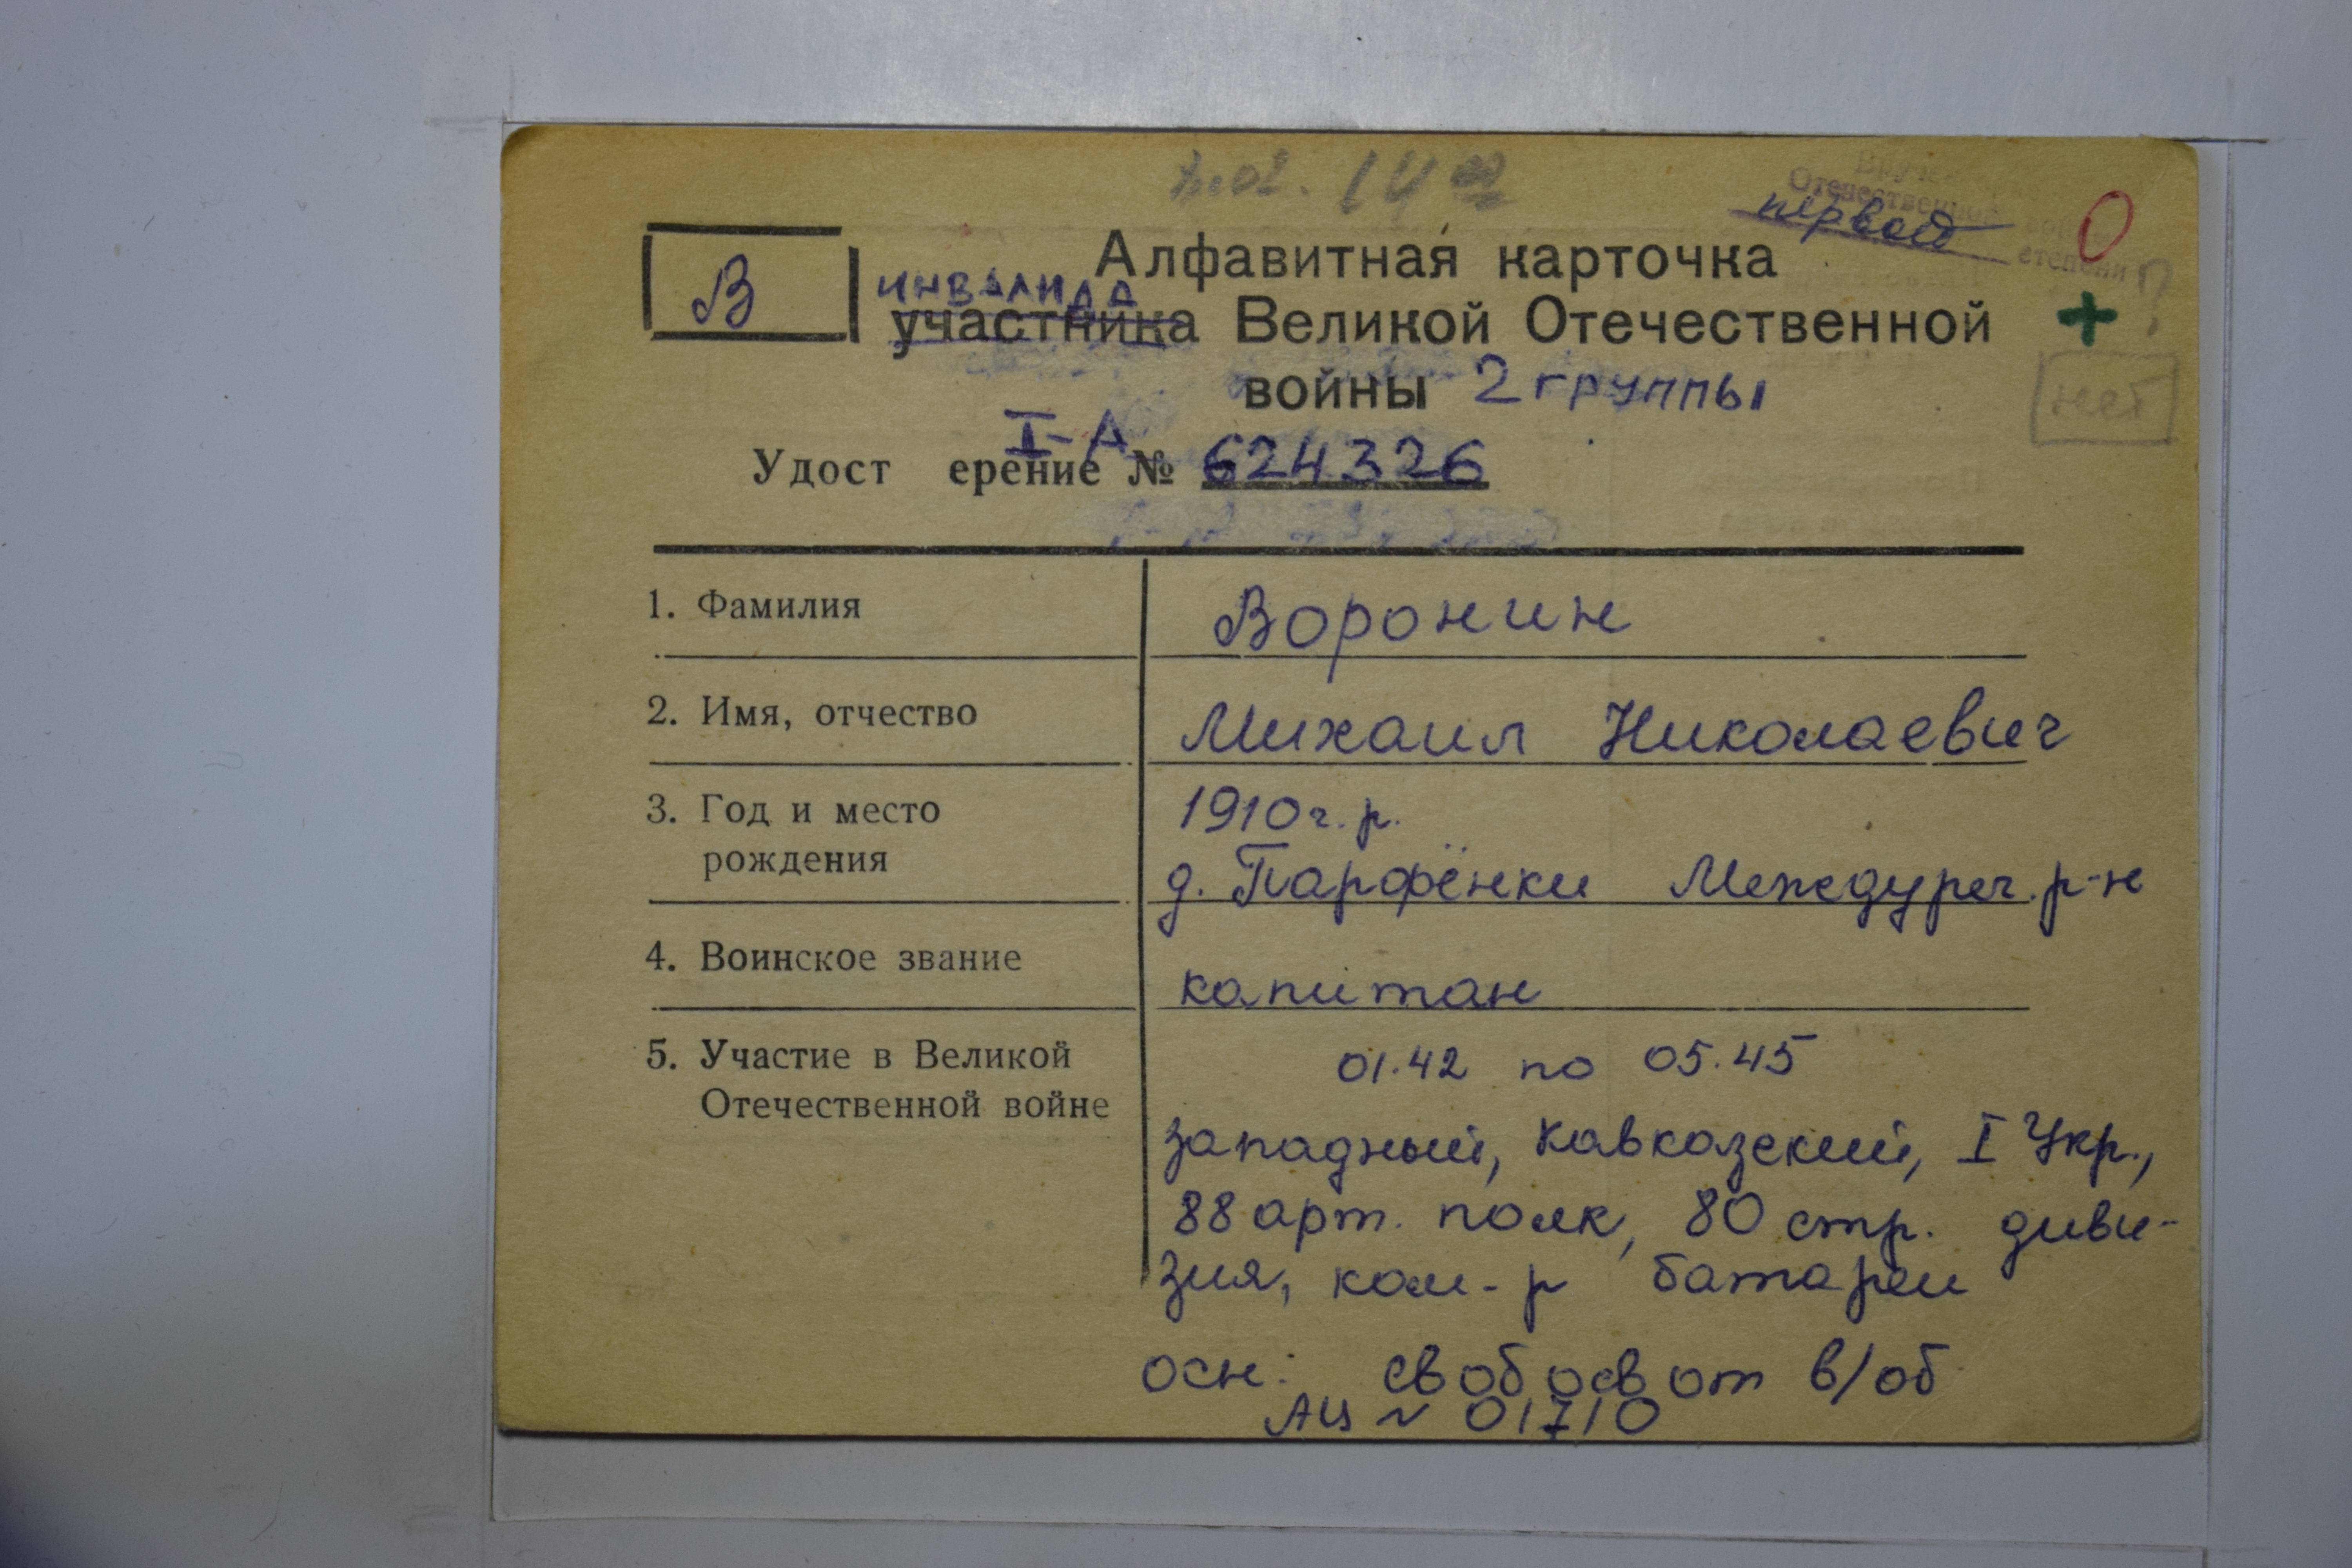 первой
Отечественной
степени
О
В
Алфавитная карточка
инвалида
участника Великой Отечественной
войны 2 группы
нет
I-А
Удост ерение № 624326
1. Фамилия
Воронин
2. Имя, отчество
Михаил Николаевич
3. Год и место
рождения
1910 г. р.
д. Парфёнки Междуреч. р-н
4. Воинское звание
капитан
5. Участие в Великой
Отечественной войне
01.42 по 05.45
западный, Кавказский, I Укр.,
88 арт. полк, 80 стр. диви-
зия, ком-р батареи
осн: св об осв от в/об
АЦ № 01710